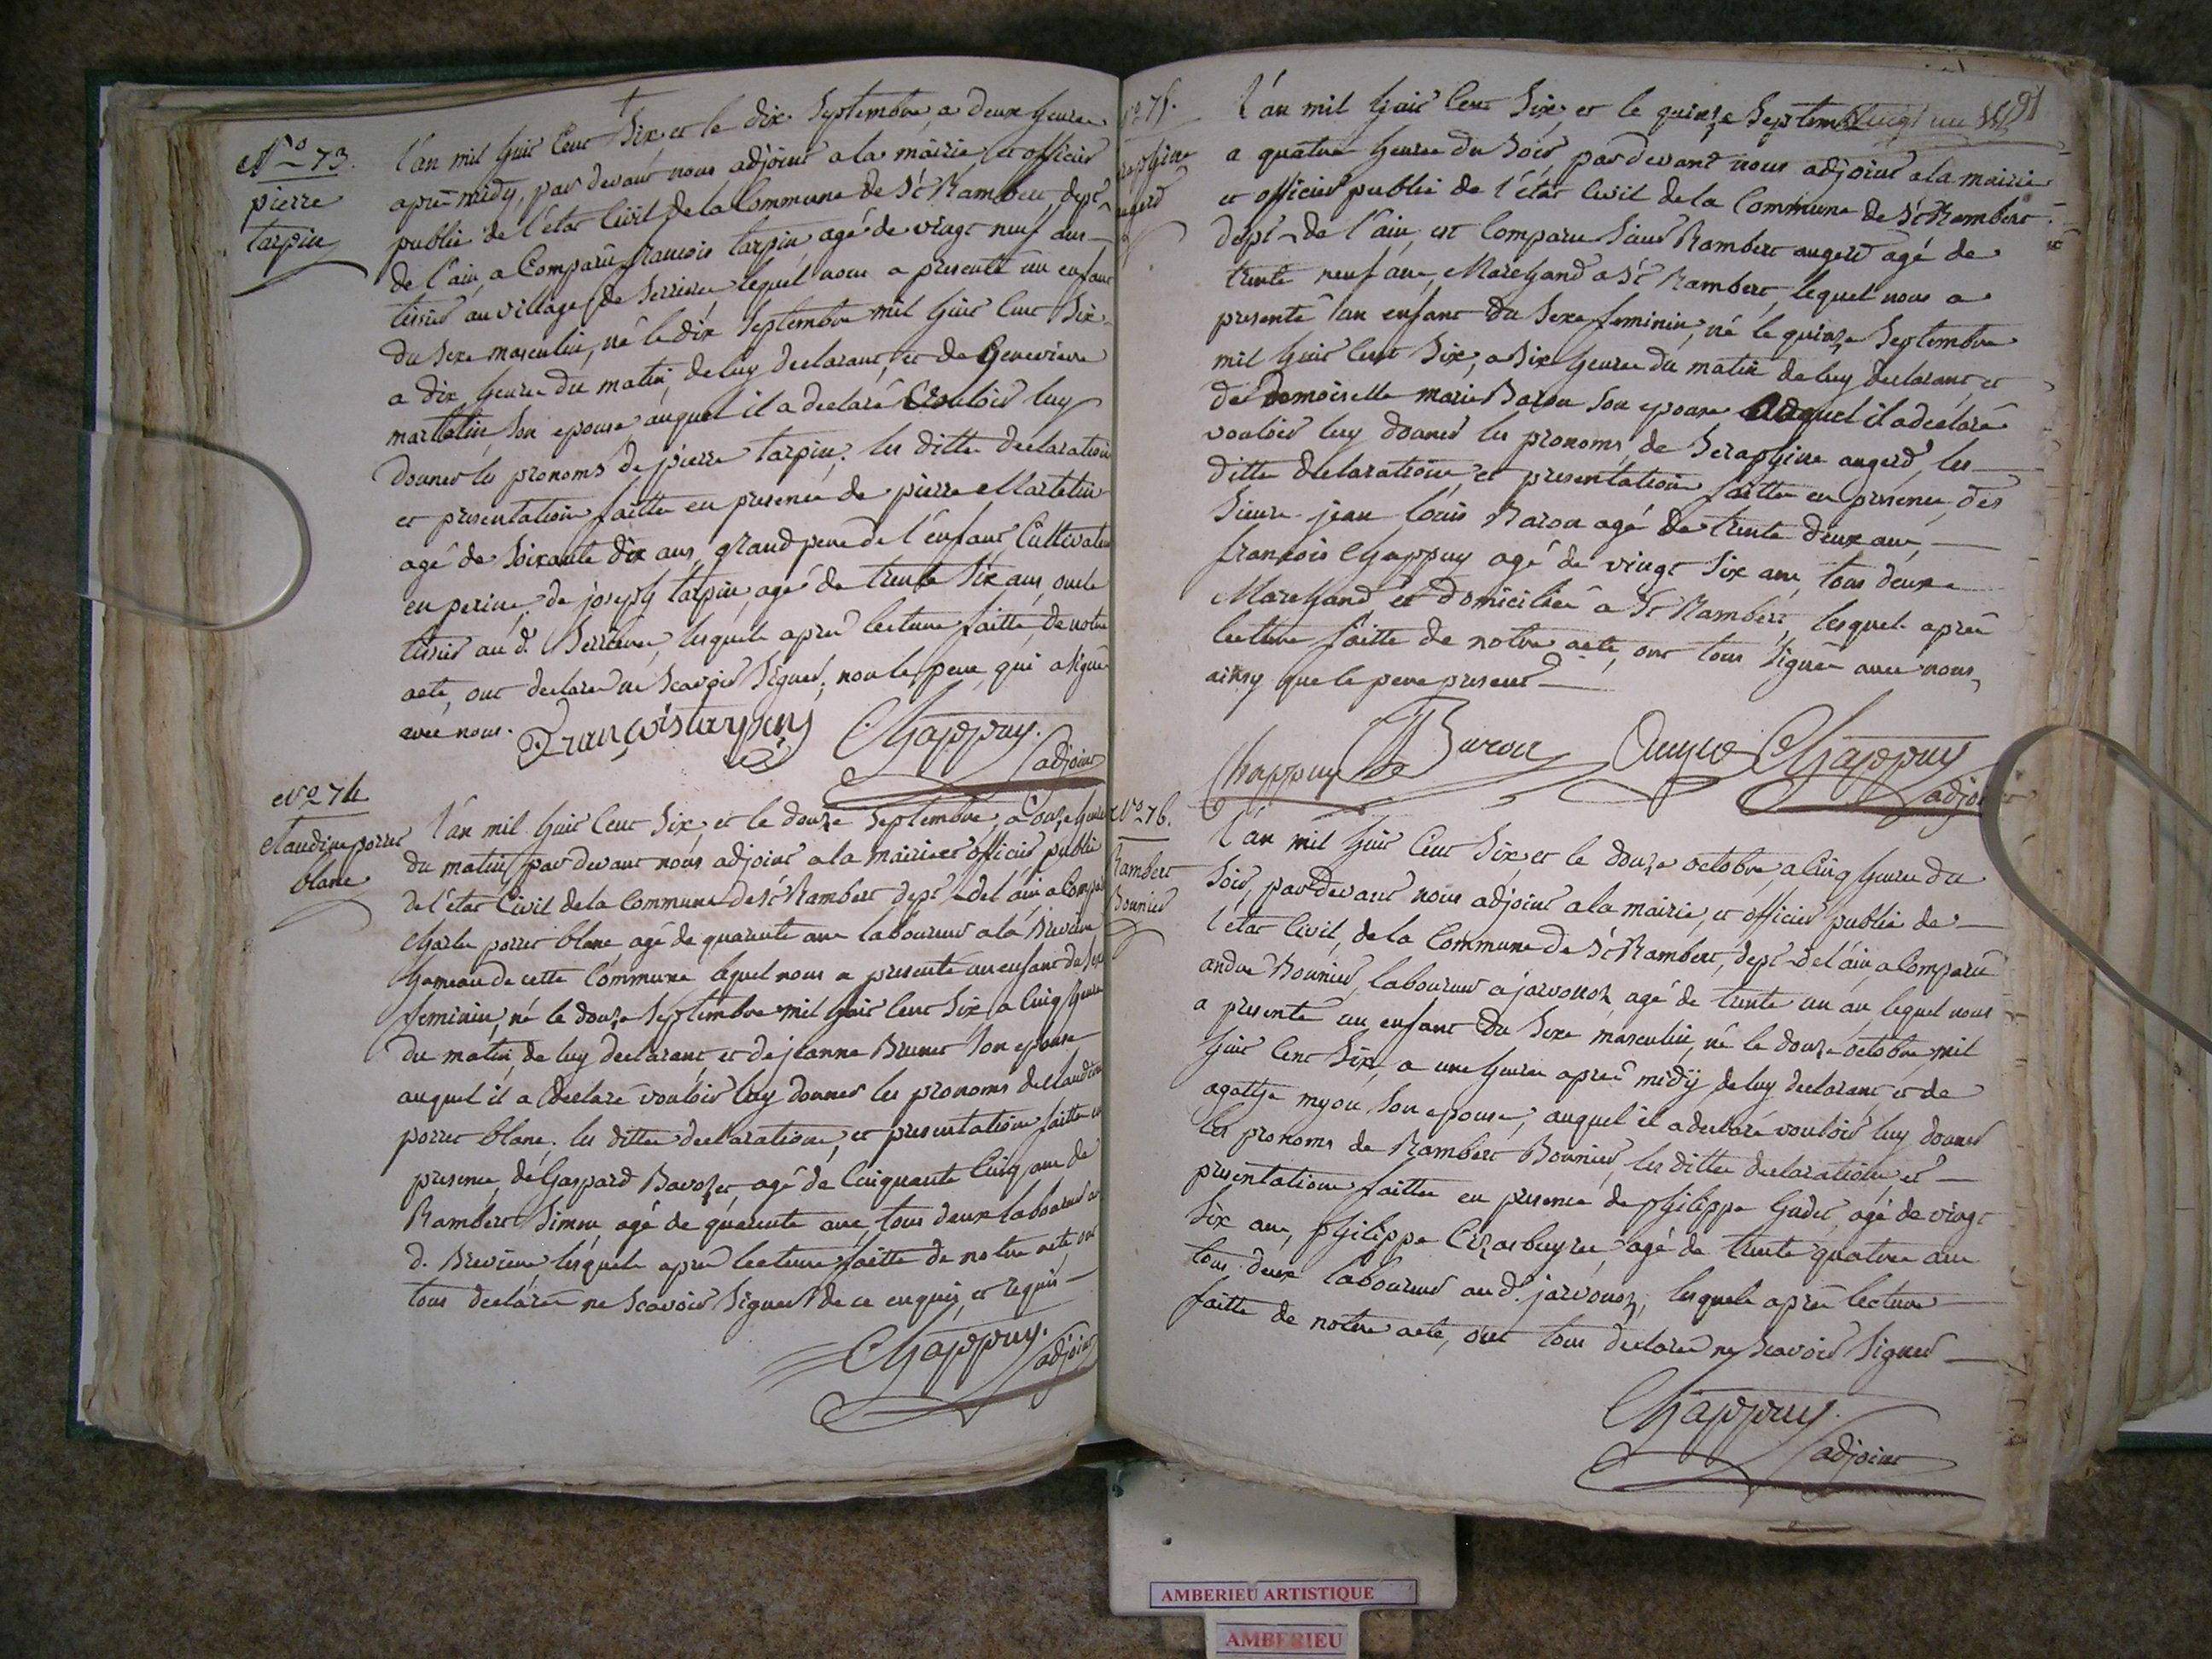 N.o 73.
pierre
tarpin
l'an mil huit Cent Six, et le dix Septembre, a deux heures
après midy, par devant nous adjoint a la mairie, et officier
public de l'état Civil de la Commune de St Rambert, dept
de l'ain, a Comparû françois tarpin, agé de vingt neuf ans
tissier au village de Serrieres lequel nous a presenté un enfant
du Sexe masculin, né le dix Septembre mil huit Cent Six
a dix heures du matin, de luy declarant, et de Genevieve
martelin, Son epouse, auquel il a declaré Vouloir luy
donner les pronoms de pierre tarpin. les dittes declaration
et presentation faittes en presence de pierre Martelin
agé de Soixante dix ans, grand pere de l'enfant Cultivateur
en perine, de joseph tarpin, agé de trente Six ans, oncle
tissier au d. Serrieres, lesquels après lecture faitte, de notre
acte, ont declaré ne Scavoir Signer, non le pere, qui a signé
avec nous. François tarpin Chappuy.
adjoint
N.o 74
Claudine porret
blanc
l'an mil huit Cent Six, et le douze Septembre, a onze heures
du matin, par devant nous adjoint a la mairie et officier public
de l'état Civil de la Commune de St Rambert dept de l'ain a Comparû
Charles porret blanc, agé de quarante ans laboureur a la Breviere
hameau de cette Commune lequel nous a presenté un enfant du Sexe
feminin, né le douze Septembre mil huit Cent Six a Cinq heures
du matin, de luy declarant, et de jeanne Brunet Son epouse
auquel il a declaré vouloir luy donner les pronoms de Claudine
porret blanc. les dittes declarations, et presentation faittes en
presence, de Gaspard Bavozet, agé de Cinquante Cinq ans de
Rambert Simon, agé de quarante ans, tous deux laboureurs au
d. Breviere, lesquels après lecture faitte de notre acte, ont
tous declaré ne Scavoir Signer de ce enquis, et requis
Chappuy.
adjoint
N.o 75.
Seraphine
augerd
l'an mil huit Cent Six, et le quinze Septembre
a quatre heures du Soir, par devant nous adjoint a la mairie
et officier public de l'état Civil de la Commune de St Rambert
dept de l'ain, est Comparu Sieur Rambert augerd agé de
trente neuf ans, Marchand a St Rambert, lequel nous a
presenté un enfant du Sexe feminin, né le quinze Septembre
mil huit Cent Six, a Six heures du matin de luy declarant, et
de Demoiselle marie Baron Son epouse Auquel il a declaré
vouloir luy donner les pronoms, de Seraphine augerd, les
dittes declarations, et presentation faittes en presence, des
Sieurs jean Louis Baron agé de trente deux ans,
françois Chappuy agé de vingt Six ans, tous deux
Marchand, et domiciliés a St Rambert, lesquels après
lecture faitte de notre acte, ont tous Signés avec nous,
ainsy que le pere present
Chappuy Baron Augerd Chappuy
adjoint
N.o 76.
Rambert
Bonnier
l'an mil huit Cent Six, et le douze octobre, a Cinq heures du
Soir, par devant nous adjoint a la mairie, et officier public de
l'état Civil, de la Commune de St Rambert, dept de l'ain, a Comparû
andré Bonnier, laboureur a javornoz, agé de trente un an, lequel nous
a presenté un enfant du Sexe masculin, né le douze octobre, mil
huit Cent Six, a une heures après midy de luy declarant et de
agathe myon Son epouse, auquel il a declaré vouloir luy donner
les pronoms de Rambert Bonnier, les dittes declarations et
presentations faittes en presence de philippe Gudet, agé de vingt
Six ans, philippe agé de trente quatre ans
tous deux laboureurs au d. javornoz, lesquels après lecture
faitte de notre acte, ont tous declaré ne Scavoir Signer
Chappuy.
adjoint
AMBERIEU ARTISTIQUE
AMBERIEU